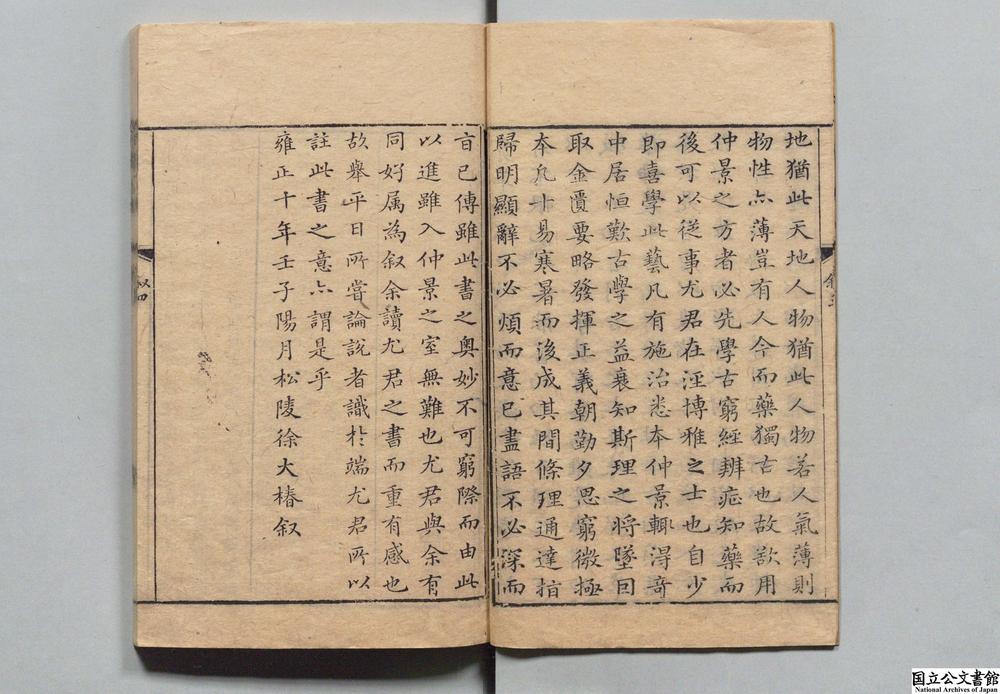 地猶此天地人物猶此人物若人氣薄則
物性亦薄豈有人今而藥獨古也故欲用
仲景之方者必先學古窮經辨症知藥而
後可以從事尤君在涇博雅之士也自少
即喜學此藝凡有施治悉本仲景輒得奇
中居恒歎古學之益衰知斯理之將墜因
取金匱要略發揮正義朝勤夕思窮微極
本凡十易寒暑而後成其間條理通達指
歸明顯辭不必煩而意已盡語不必深而
旨已傳雖此書之奧妙不可窮際而由此
以進雖入仲景之室無難也尤君與余有
同好属為叙余讀尤君之書而重有感也
故舉平日所嘗論說者識於端尤君所以
註此書之意亦謂是乎
雍正十年壬子陽月松陵徐大椿叙
叙四
国立公文書館
National Archives of Japan